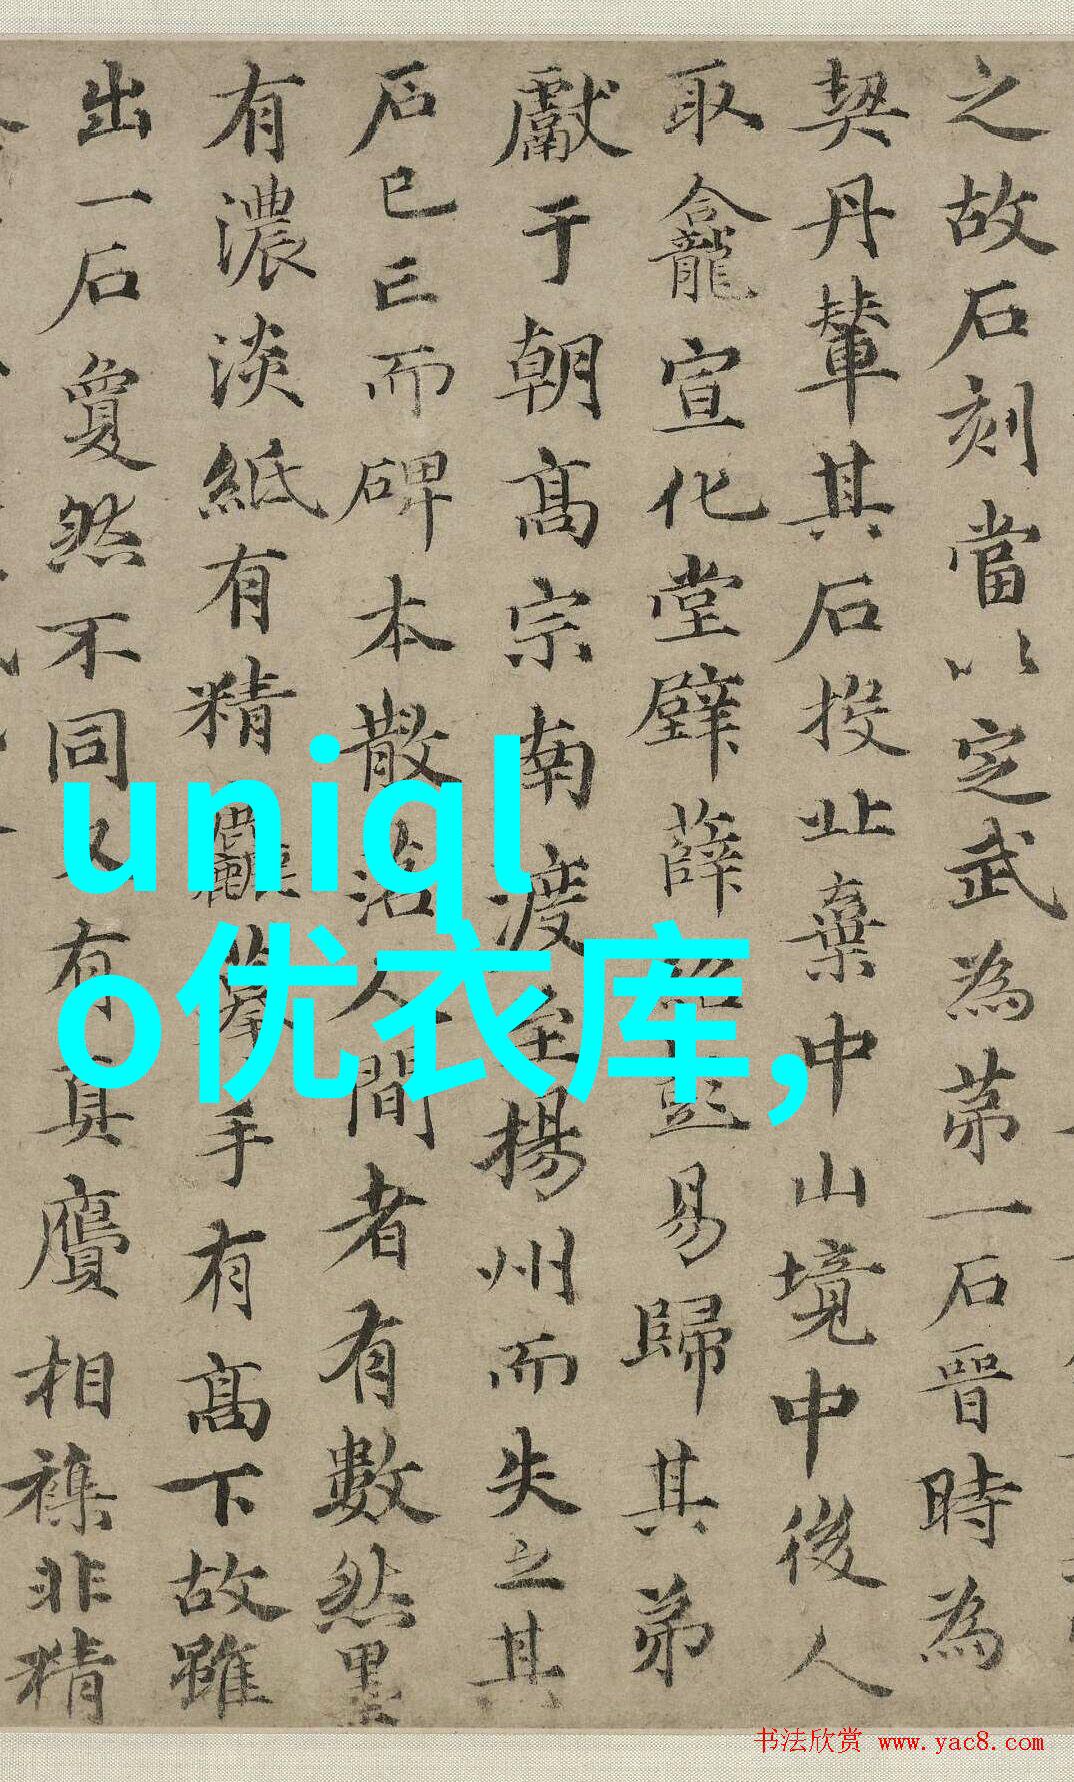 之故石刻當以定武為苐一石晉時為
契丹輦其石投北棄中山境中後人
取龕宣化堂壁薛紹彭易歸其弟
獻于朝髙宗南渡至揚州而失之其
石已亡而碑本散落人間者有數然墨
有濃淡紙有精麤摹手有髙下故雖
出一石敻然不同又有真贋相襍非精
uniql
o优衣库,
书法欣赏 www.yac8.com